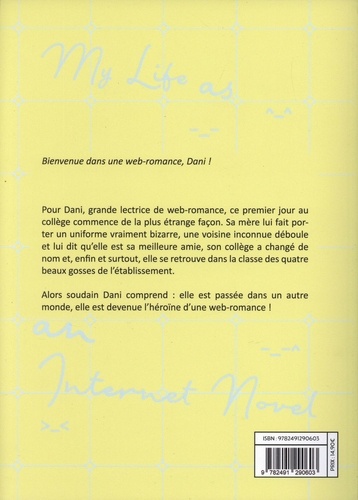 My Life as
^_^
Bienvenue dans une web-romance, Dani !
Pour Dani, grande lectrice de web-romance, ce premier jour au
collège commence de la plus étrange façon. Sa mère lui fait por-
ter un uniforme vraiment bizarre, une voisine inconnue déboule
et lui dit qu’elle est sa meilleure amie, son collège a changé de
nom et, enfin et surtout, elle se retrouve dans la classe des quatre
beaux gosses de l’établissement.
Alors soudain Dani comprend : elle est passée dans un autre
monde, elle est devenue l’héroïne d’une web-romance !
an
^--^
Internet Novel
>_<
ISBN : 9782491290603
9 782491 290603
PRIX : 14,90€